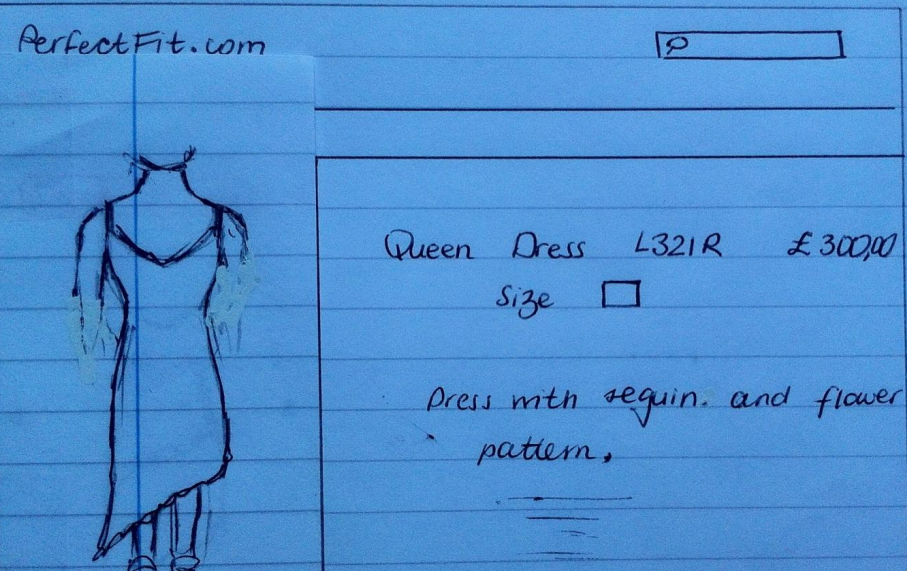 PerfectFit.com
Queen Dress L321R £300,00
Size
Dress with sequin. and flower
pattern,